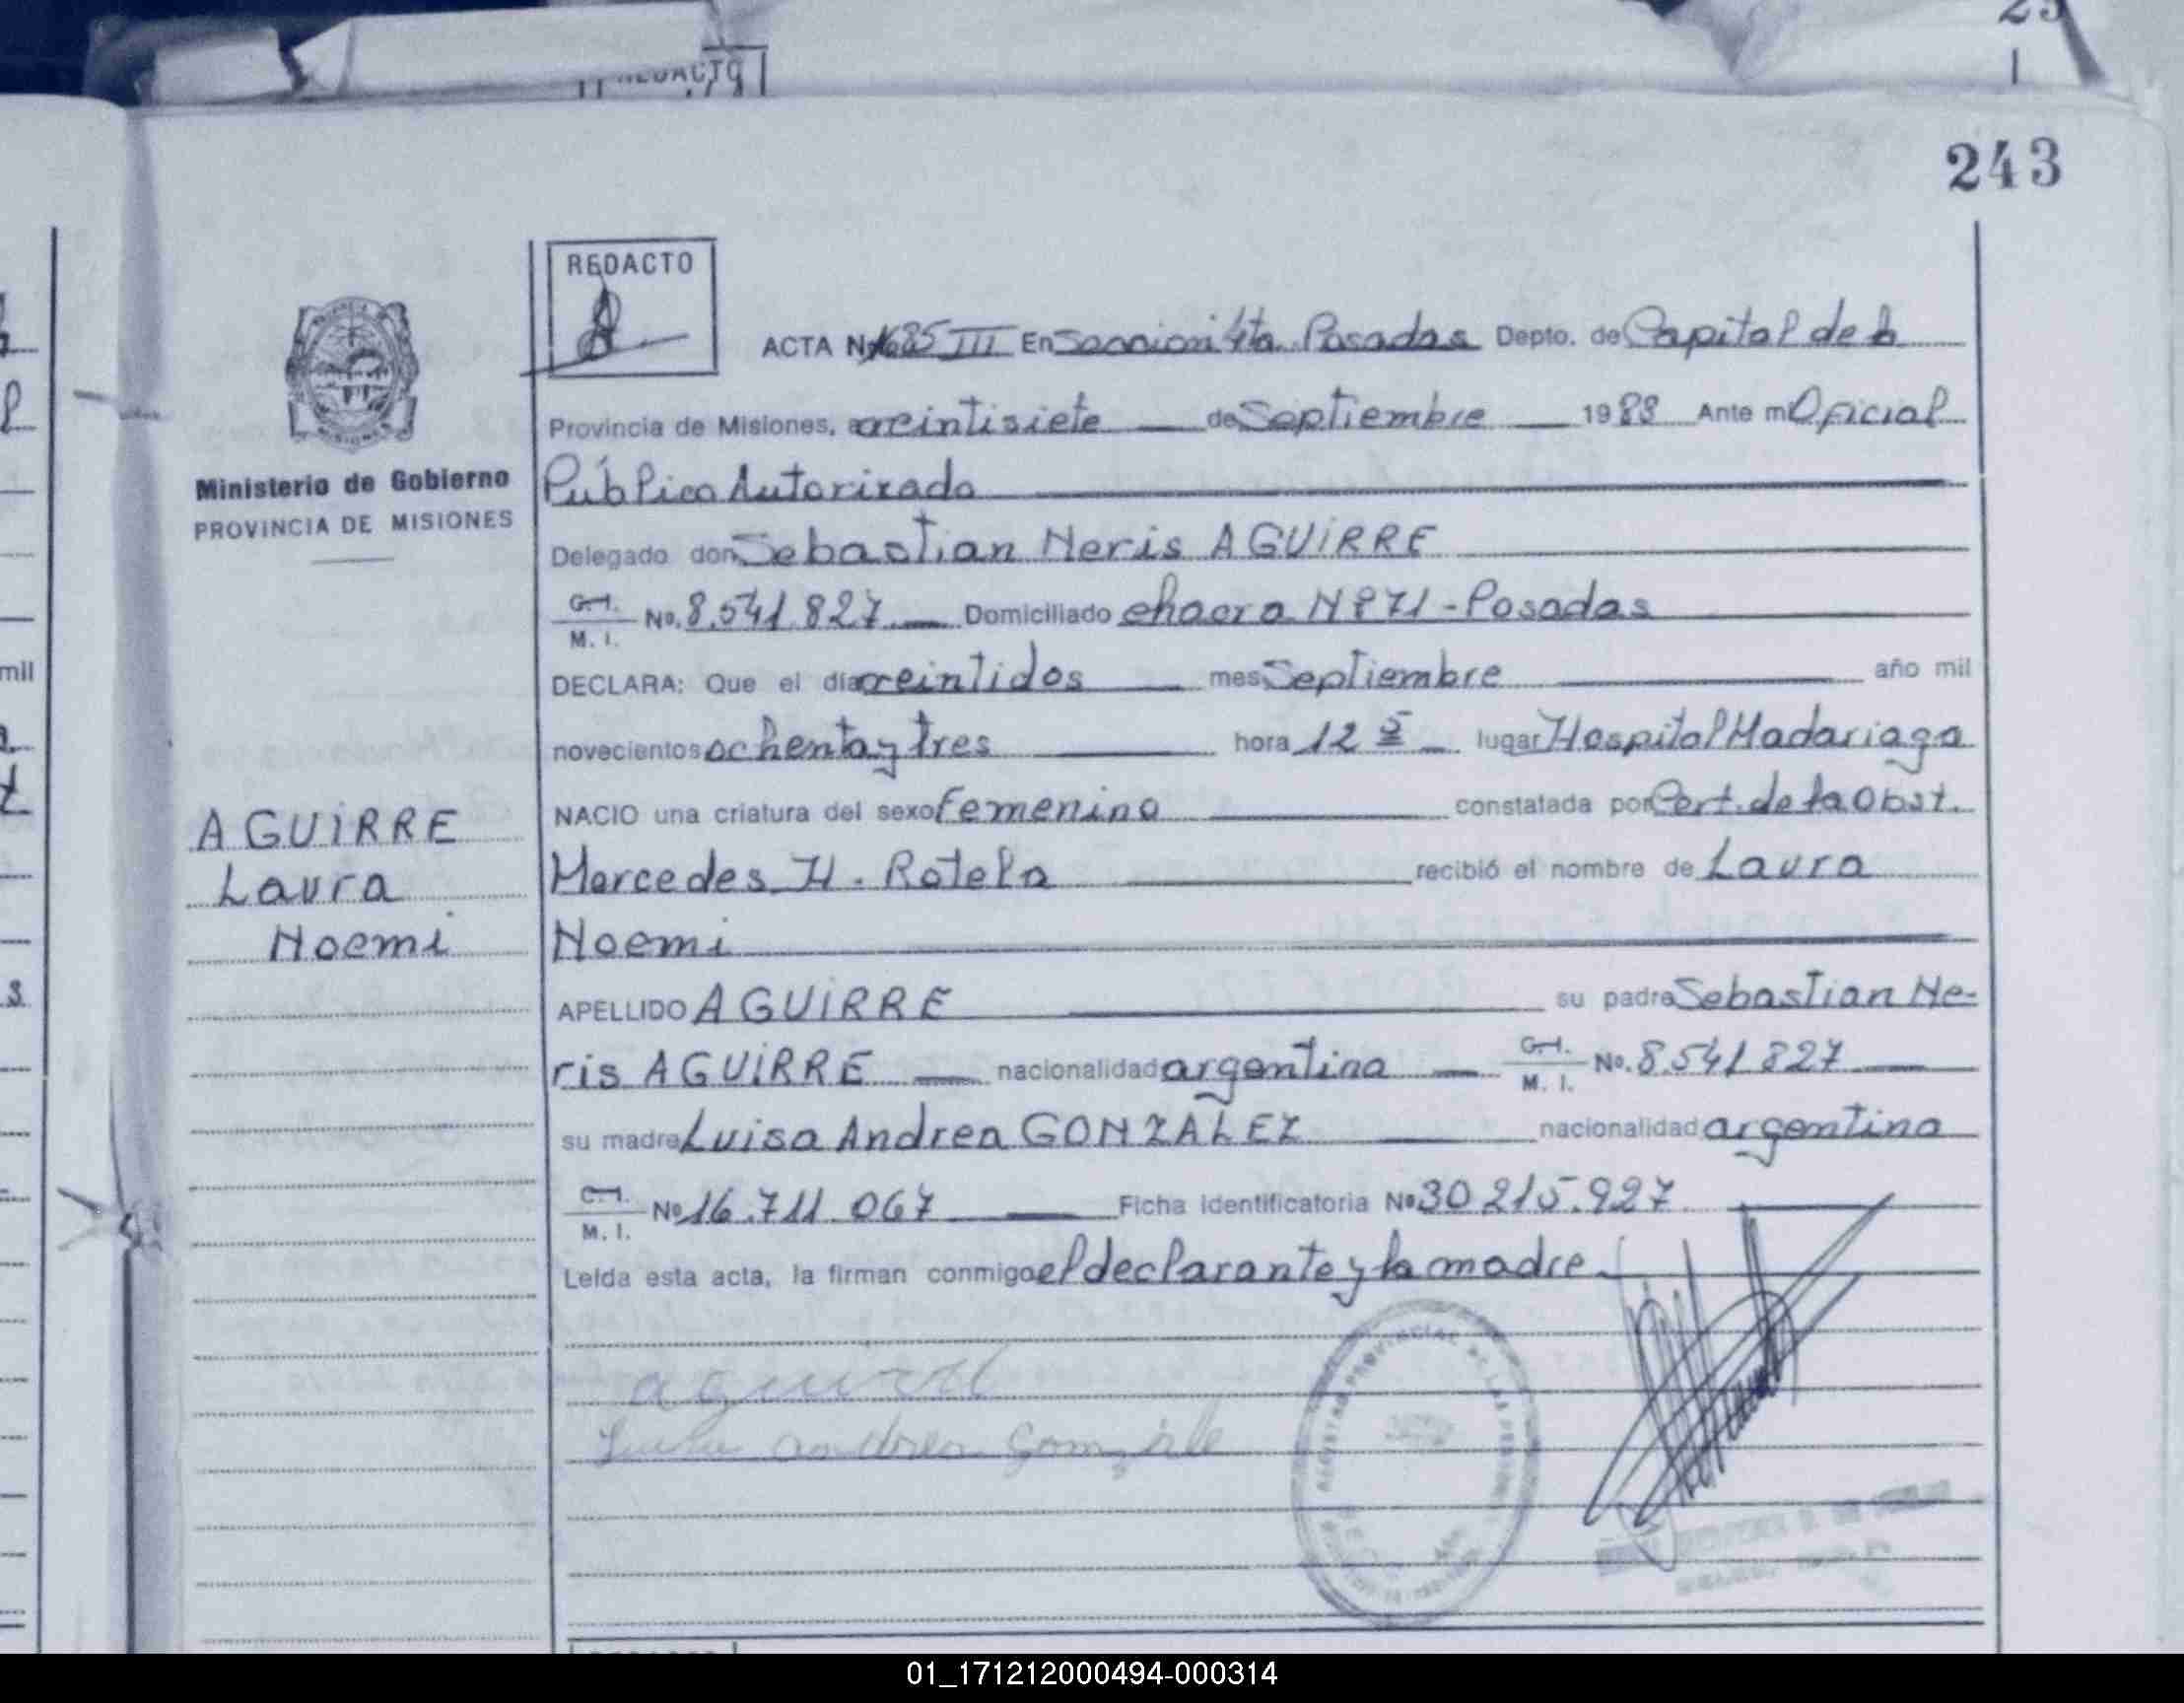 REDACTO
243
REDACTO
ACTA No 1685 III En Seccion 4ta. Posadas Depto. de Capital de la
Provincia de Misiones, a veintisiete de Septiembre 1983 Ante mi Oficial
Público Autorizado
Ministerio de Gobierno
PROVINCIA DE MISIONES
Delegado don Sebastian Neris AGUIRRE
C.I. M. I. No. 8.541.827 Domiciliado chacra Nº 71 - Posadas
DECLARA: Que el día veintidos mes Septiembre año mil
novecientos ochenta y tres hora 12 lugar Hospital Madariaga
NACIO una criatura del sexo femenino constatada por Cert. de la Obst.
Mercedes H. Rotela recibió el nombre de Laura
Noemi
AGUIRRE
Laura
Noemi
APELLIDO AGUIRRE su padre Sebastian Ne-
ris AGUIRRE nacionalidad argentina C.I. M. I. No. 8.541.827
su madre Luisa Andrea GONZALEZ nacionalidad argentina
C.I. M. I. No 16.711.067 Ficha Identificatoria No 30.215.927
Leída esta acta, la firman conmigo el declarante y la madre.
aguirre
andrea
mil
01_171212000494-000314